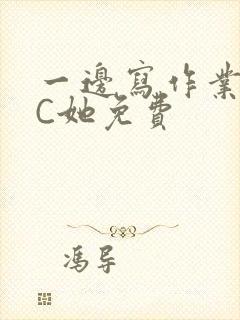 一邊寫作業
C她免費
馮导